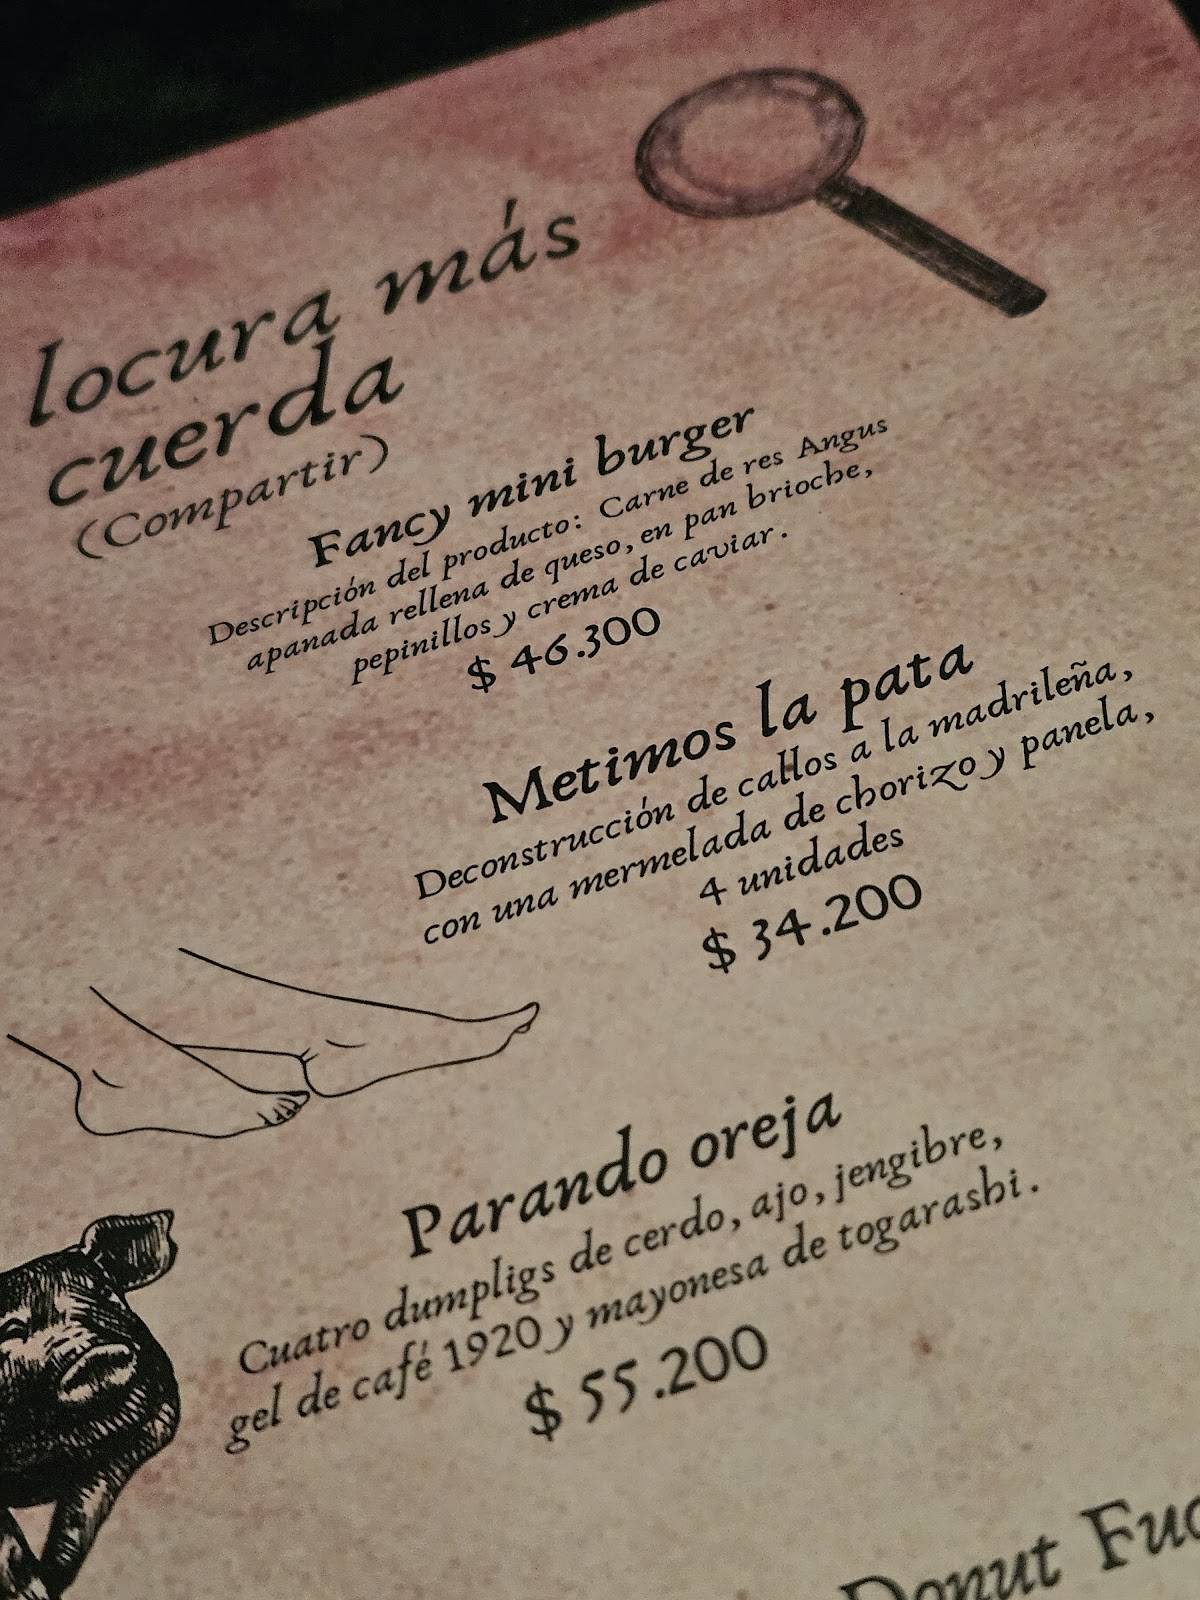 locura más
cuerda
(Compartir)
Fancy mini burger
Descripción del producto: Carne de res Angus
apanada rellena de queso, en pan brioche,
pepinillos y crema de caviar.
$ 46.300
Metimos la pata
Deconstrucción de callos a la madrileña,
con una mermelada de chorizo y panela,
4 unidades
$ 34.200
Parando oreja
Cuatro dumpligs de cerdo, ajo, jengibre,
gel de café 1920 y mayonesa de togarashi.
$ 55.200
Donut